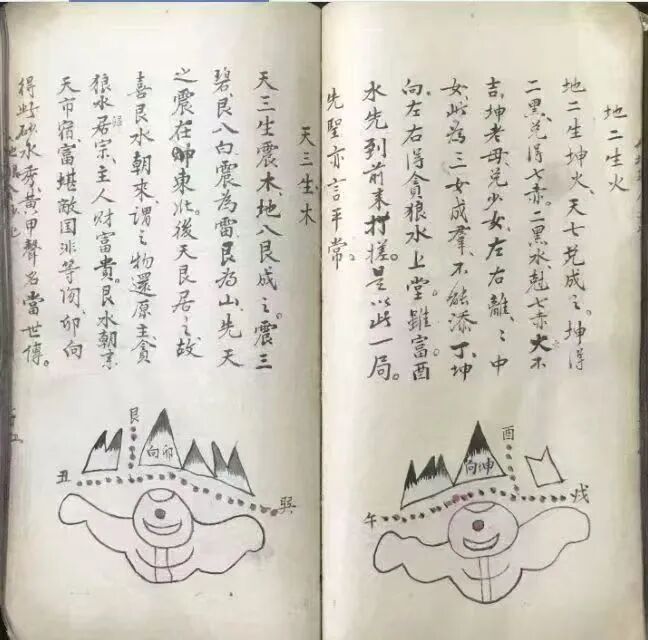 地二生火
地二生坤火、天七兌成之。坤得
二黑、兌得七赤。二黑水、尅七赤火不
吉。坤老母、兌少女、左右離、離中
女、此為三女成羣、不能添丁、坤
向、左右得貪狼水上堂。雖富酉
水先到前来打搓。是以此一局。
先聖亦言平常。
酉
坤向
午
戌
天三生木
天三生震木、地八艮成之。震三
碧、艮八白、震為雷、艮為山、先天
之震在東北。後天艮居之故
喜艮水朝來、謂之物還原主貪
狼水居宗、主人財富貴。艮水朝來
天市宿富堪敵国洪等向、卯向
得好砂水秀、黄甲聲名當世傳。
艮
卯向
丑
巽